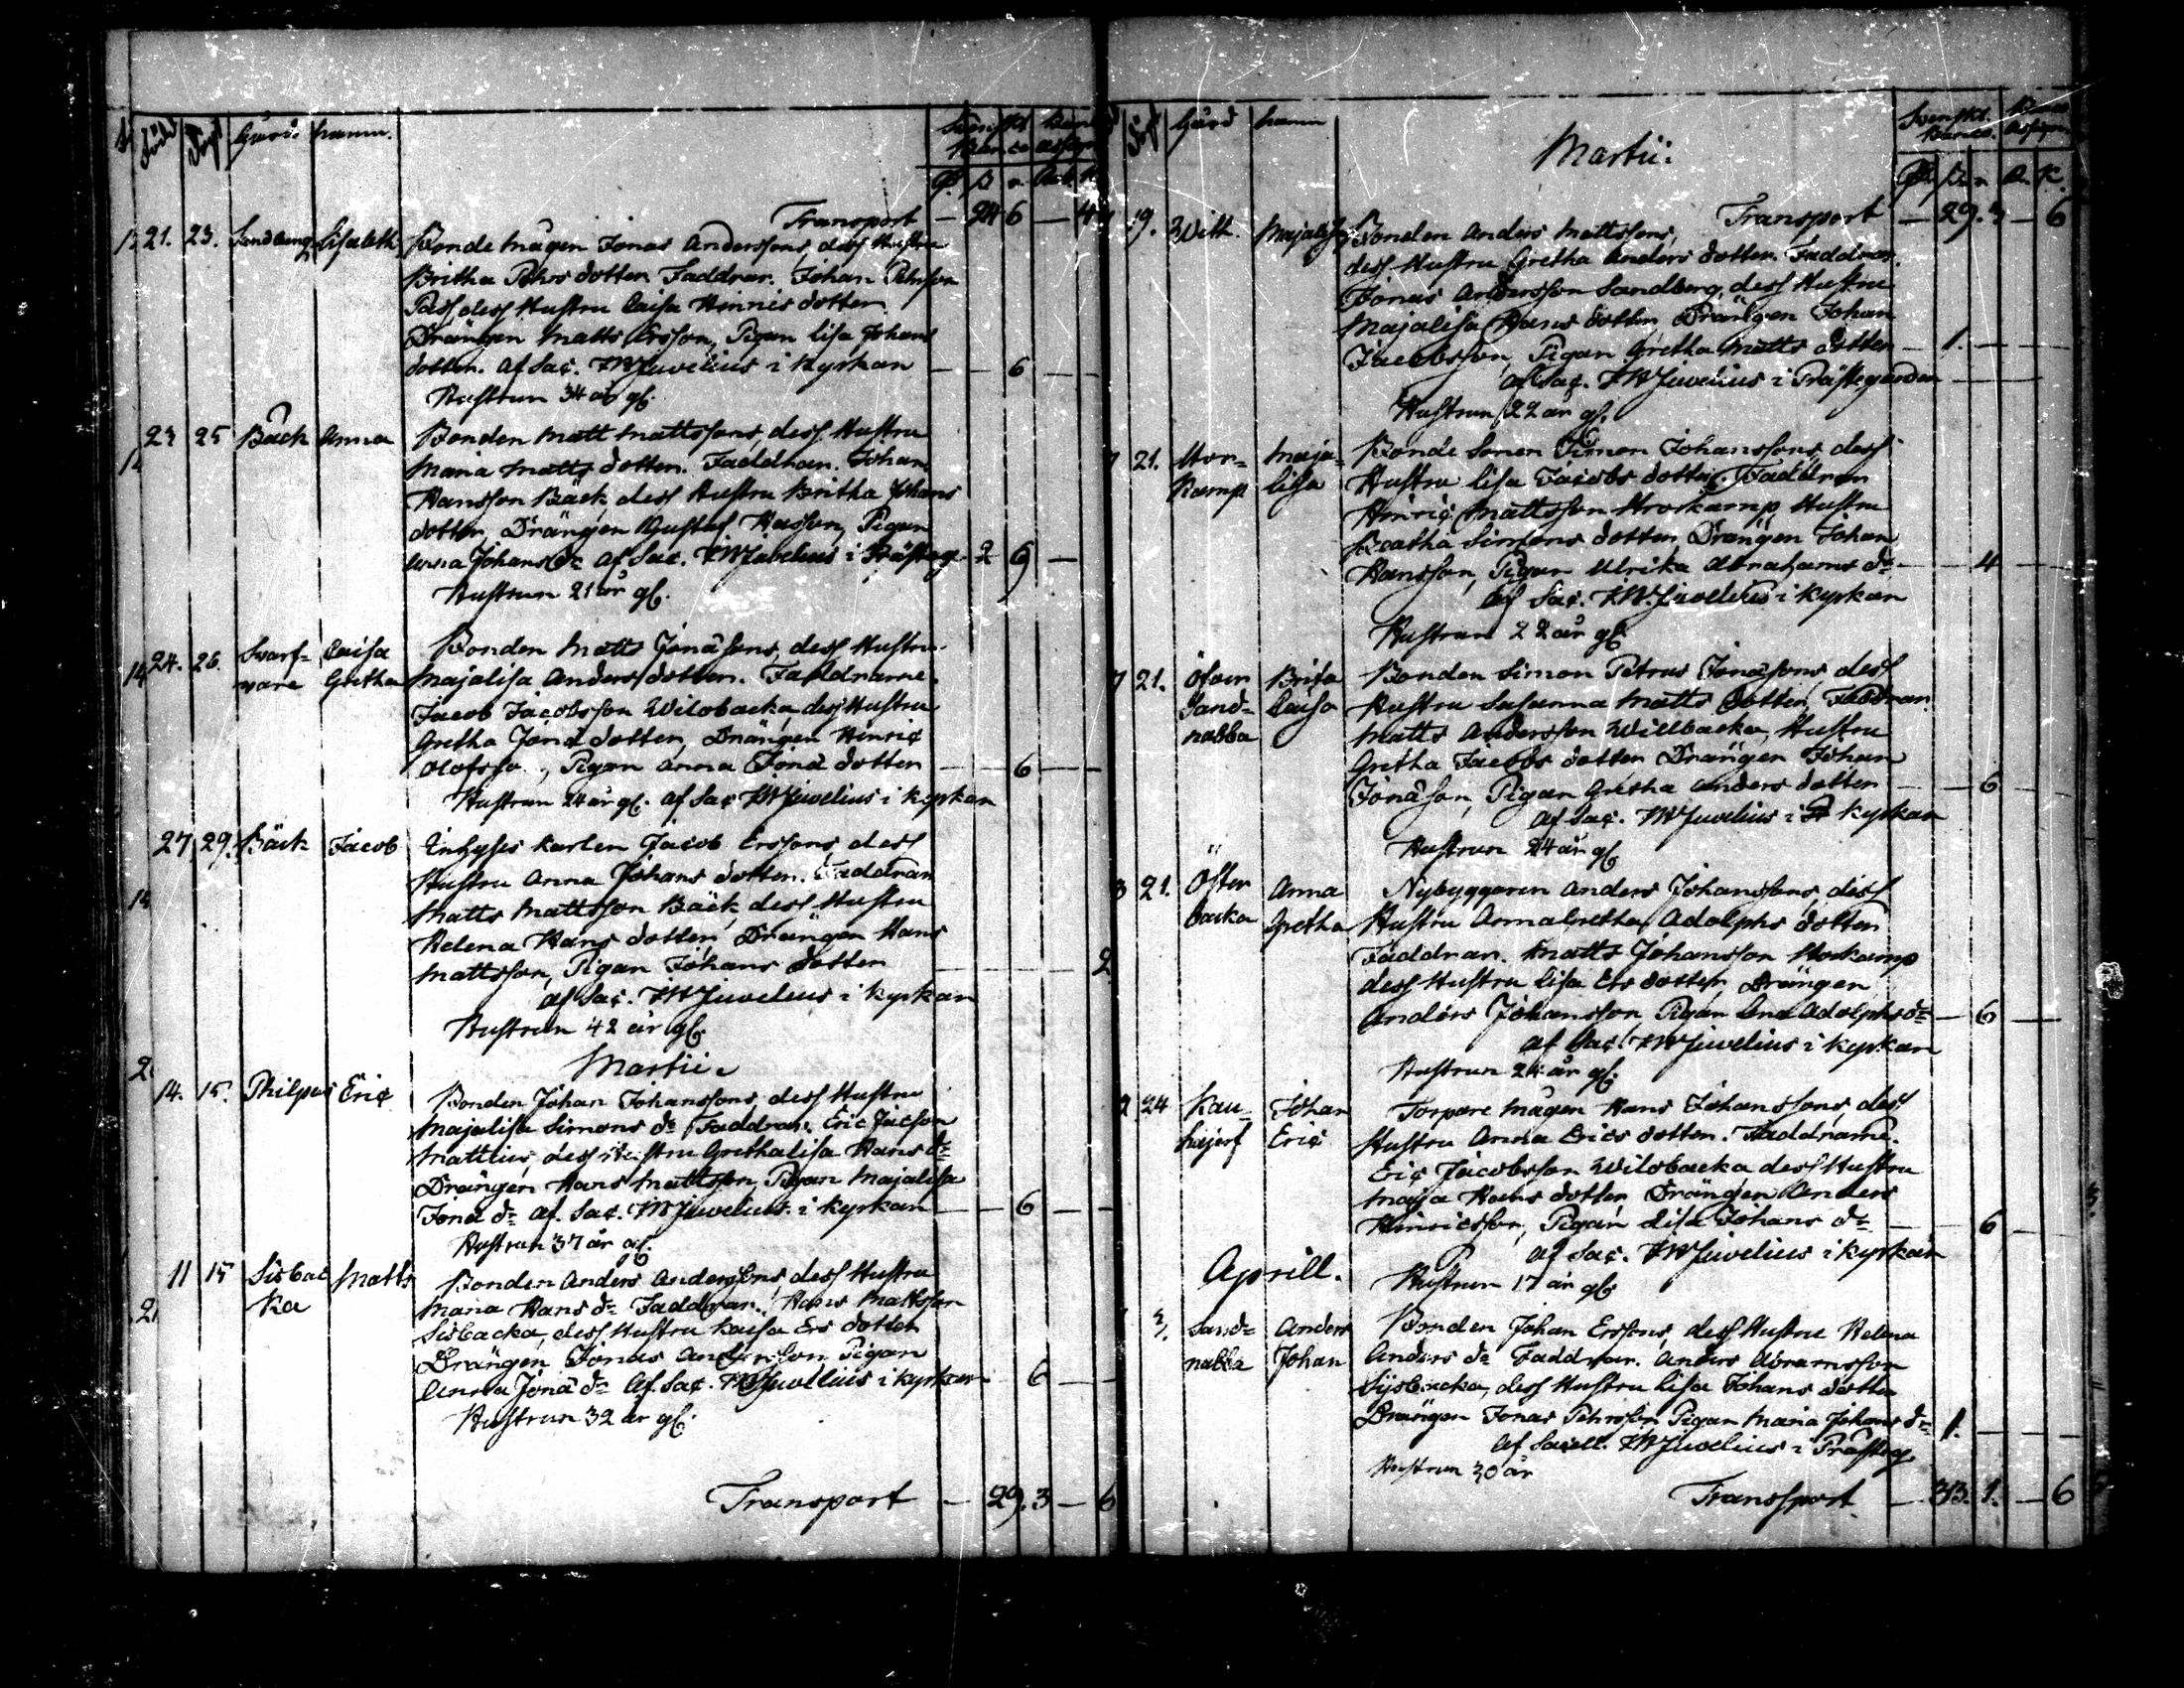 Född Döpt Gård namn. Svenskt Banco Banco assign
Transport — 24 6 — 4
21. 23. Sandberg Lisabeth Bonde mågen Jonas Anderssons, dess Hustru
Britha Pehrs dotter. Faddrar. Johan Pehrsson
Pass, dess Hustru Caisa Hinrics dotter
Drängen Matts Ersson, Pigan Lisa Johans
dotter. af Sac. JWJuvelius i Kyrkan — — 6 —
Hustrun 34 år gl.
23 25 Bäck Anna Bonden Matt Mattssons, dess Hustru
Maria Matts dotter. Faddrar. Johan
Hansson Bäck, dess Hustru Britha Johans
dotter, Drängen Gustaf Hansson, Pigan
Anna Johans dr af Sac. JWJuvelius i Prästeg — 2 6 —
Hustrun 21 år gl.
24. 26. Svarf= Caisa Bonden Matts Jonäsons, dess Hustru
vare Gretha Majalisa Anders dotter. Faddrarne.
Jacob Jacobsson Wilobacka, dess Hustru
Gretha Jonä dotter, Drängen Hinric
Olofsso , Pigan Anna Jonä dotter — — 6 — —
Hustrun 24 år gl. af Sac JWJuvelius i Kyrkan
27 29. Bäck Jacob Inhyses karlen Jacob Erssons dess
Hustru Anna Johans dotter. Faddrar
Matts Mattsson Bäck, dess Hustru
Helena Hans dotter, Drängen Hans
Mattsson, Pigan Johans dotter — — — — 2
af Sac. JWJuvelius i Kyrkan
Hustrun 42 år gl.
Martii
14. 15. Philpus Eric Bonden Johan Johanssons, dess Hustru
Majalisa Simons dr Faddrar. Eric Jacsson
Mattlus, dess Hustru Grethalisa Hans dr
Drängen Hans Mattsson, Pigan Majalisa
Jonä dr af. Sac. JWJuvelius i Kyrkan — — 6 — —
Hustrun 37 år gl.
11 15 Sisbac Matts Bonden Anders Anderssons dess Hustru
ka Maria Hans dr Faddrar. Hans Mattsson
Sisbacka, dess Hustru Kaisa Ers dotter
Drängen Jonas Andersson, Pigan
Anna Jonä dr af Sac. JWJuvelius i kyrkan — 6 — —
Hustrun 32 år gl.
Transport — 29. 3 — 6
Döpt Gård namn Martii. Svenskt. Banco. Banco Assign
R. s. r A. K.
Transport — 29. 3 — 6
19. With. Majalisa Bonden Anders Mattssons,
dess Hustru Gretha Anders dotter. Faddrar.
Jonas Andersson Sandberg, dess Hustru
Majalisa Hans dotter, Drängen Johan
Jacobsson, Pigan Gretha Matts dotter — 1. — —
af Sac. JWJuvelius i Prästegården
Hustrun 22 år gl.
21. Stor= Maja= Bonde Sonen Simon Johanssons, dess
kamp lisa Hustru Lisa Jacobs dotter. Faddrar
Hinric Mattsson Storkamp Hustru
Beatha Simons dotter Drängen Johan
Hansson, Pigan Ulrika Abrahams dr — — 4 —
af Sac. JWJuvelius i Kyrkan
Hustrun 22 år gl.
21. Öfver Brita Bonden Simon Petrus Jonäsons, dess
Sand= Caisa Hustru Susanna Matts dotter, Faddrar.
nabba Matts Andersson Willbacka, Hustru
Gretha Jacobs dotter Drängen Johan
Jonäson, Pigan Gretha Anders dotter — — 6 —
af Sac. JWJuvelius i Kyrkan
Hustrun 24 år gl
21. Öster Anna Nybyggaren Anders Johanssons, dess
backa Gretha Hustru Annagretha Adolphs dotter
Faddrar. Matts Johansson Storkamp
dess Hustru Lisa Ers dotter, Drängen
Anders Johansson Pigan Ana Adolphs dr — 6 —
af Sac. JWJuvelius i kyrkan
Hustrun 24 år gl.
24 Kau= Johan Torpare mågen Hans Johanssons, dess
hajerf Eric Hustru Anna Erics dotter. Faddrarne.
Eric Jacobsson Wilobacka dess Hustru
Maja Hans dotter Drängen Anders
Hinricsson, Pigan Lisa Johans dr — — 6 —
af Sac. JWJuvelius i kyrkan
Aprill. Hustrun 17 år gl.
3. Sand= Anders Bonden Johan Erssons, dess Hustru Helena
nabba Johan Anders dr Faddrar. Anders Abramsson
Sysbacka, dess Hustru Lisa Johans dotter
Drängen Jonas Pehrsson Pigan Maria Johans dr — 1. — — —
af Sacell. JWJuvelius i Prästeg
Hustrun 30 år
Transport — 33. 1. — 6